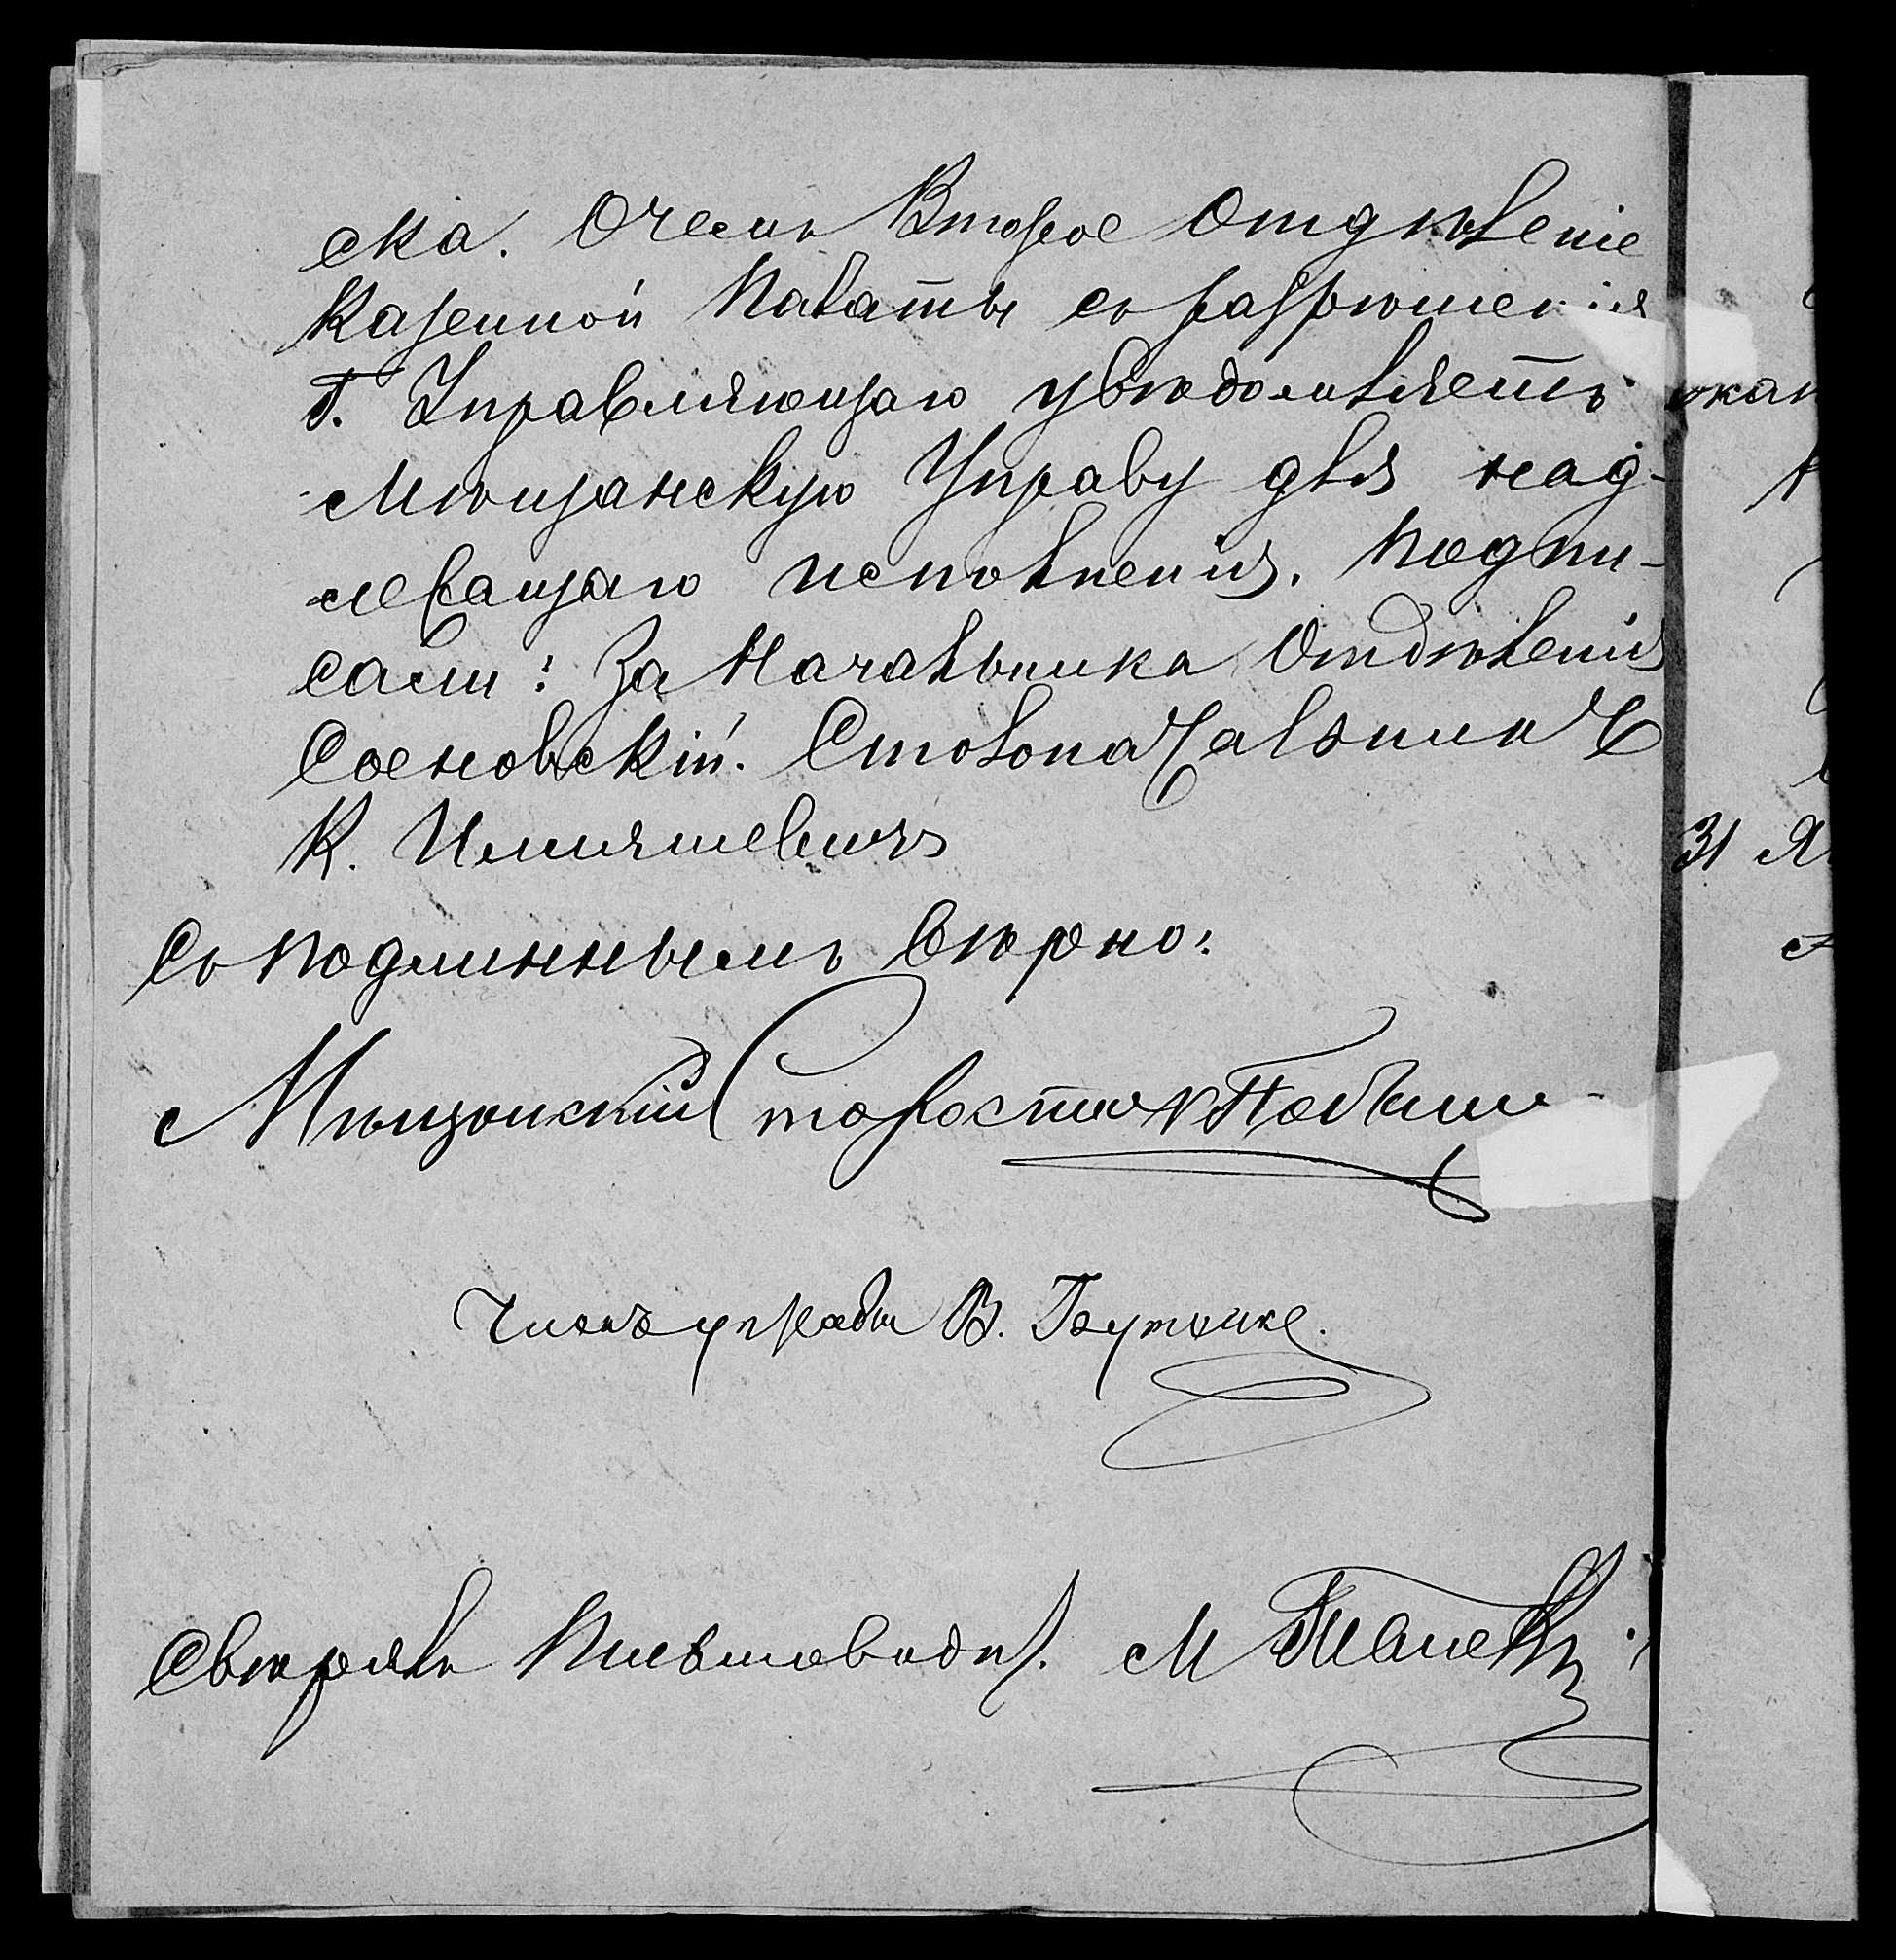 ска. О чемъ Второе Отдѣленіе
Казенной Палаты съ разрѣшенія
Г. Управляющаго увѣдомляетъ
Мѣщанскую Управу для над-
лежащаго исполненія. Подпи-
сали: За Начальника Отдѣленія
Сосновскій. Столоначальникъ
К.
Съ подлиннымъ вѣрно:
Мѣщанскій Староста
Членъ управы В.
Свѣрялъ Письмоводи. М
31